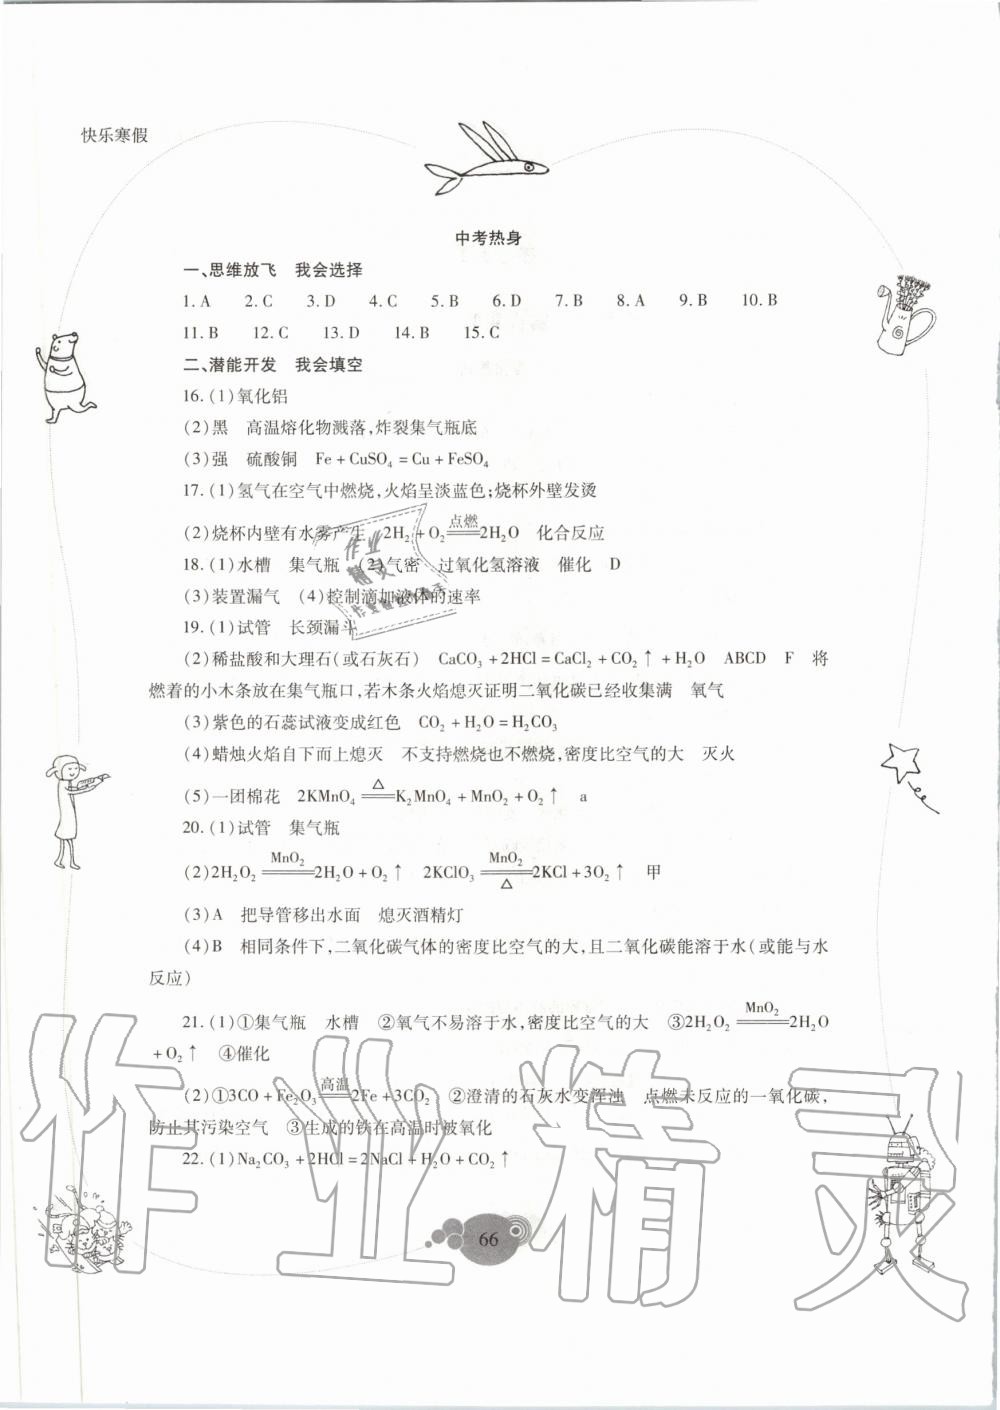 快乐寒假
中考热身
一、思维放飞　我会选择
1. A　2. C　3. D　4. C　5. B　6. D　7. B　8. A　9. B　10. B
11. B　12. C　13. D　14. B　15. C
二、潜能开发　我会填空
16. (1)氧化铝
(2)黑　高温熔化物溅落,炸裂集气瓶底
(3)强　硫酸铜　Fe + CuSO₄ = Cu + FeSO₄
17. (1)氢气在空气中燃烧,火焰呈淡蓝色;烧杯外壁发烫
(2)烧杯内壁有水雾产生　2H₂ + O₂ =点燃= 2H₂O　化合反应
18. (1)水槽　集气瓶　(2)气密　过氧化氢溶液　催化　D
(3)装置漏气　(4)控制滴加液体的速率
19. (1)试管　长颈漏斗
(2)稀盐酸和大理石(或石灰石)　CaCO₃ + 2HCl = CaCl₂ + CO₂↑ + H₂O　ABCD　F　将
燃着的小木条放在集气瓶口,若木条火焰熄灭证明二氧化碳已经收集满　氧气
(3)紫色的石蕊试液变成红色　CO₂ + H₂O = H₂CO₃
(4)蜡烛火焰自下而上熄灭　不支持燃烧也不燃烧,密度比空气的大　灭火
(5)一团棉花　2KMnO₄ =△= K₂MnO₄ + MnO₂ + O₂↑　a
20. (1)试管　集气瓶
(2)2H₂O₂ =MnO₂= 2H₂O + O₂↑　2KClO₃ =MnO₂/△= 2KCl + 3O₂↑　甲
(3)A　把导管移出水面　熄灭酒精灯
(4)B　相同条件下,二氧化碳气体的密度比空气的大,且二氧化碳能溶于水(或能与水
反应)
21. (1)①集气瓶　水槽　②氧气不易溶于水,密度比空气的大　③2H₂O₂ =MnO₂= 2H₂O
+ O₂↑　④催化
(2)①3CO + Fe₂O₃ =高温= 2Fe + 3CO₂　②澄清的石灰水变浑浊　点燃未反应的一氧化碳,
防止其污染空气　③生成的铁在高温时被氧化
22. (1)Na₂CO₃ + 2HCl = 2NaCl + H₂O + CO₂↑
66
作业精灵
作业
精灵